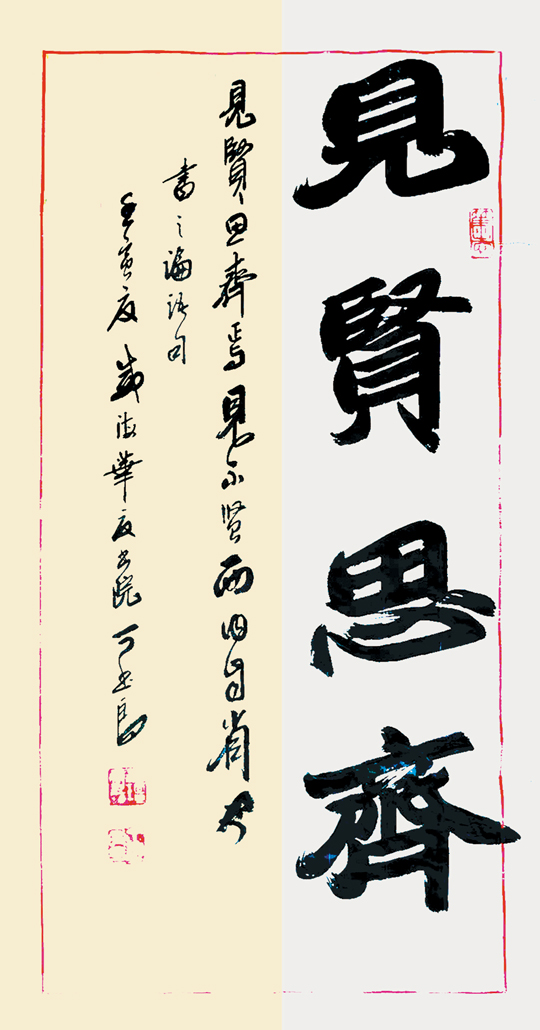 見賢思齊
見賢思齊焉見不贤而内自省也
書之論語句
壬寅夏 華夏书院